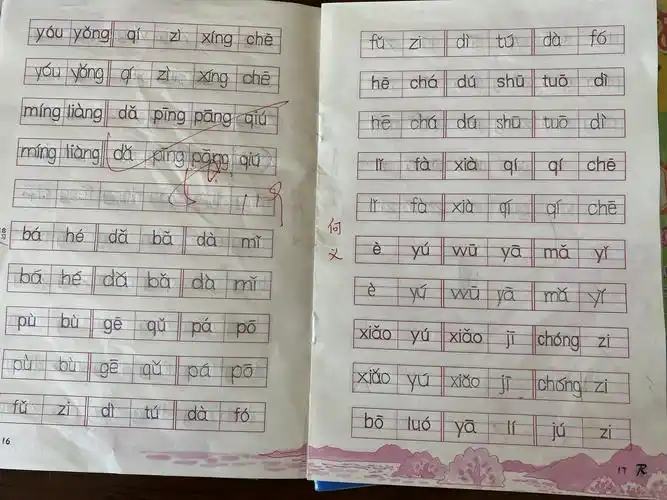 yóu yǒng qí zì xíng chē
yóu yǒng qí zì xíng chē
míng liàng dǎ pīng pāng qiú
míng liàng dǎ pīng pāng qiú
bá hé dǎ bǎ dà mǐ
bá hé dǎ bǎ dà mǐ
pù bù gē qǔ pá pō
pù bù gē qǔ pá pō
fǔ zi dì tú dà fó
16
fǔ zi dì tú dà fó
hē chá dú shū tuō dì
hē chá dú shū tuō dì
lǐ fà xià qí qí chē
lǐ fà xià qí qí chē
何
义
è yú wū yā mǎ yǐ
è yú wū yā mǎ yǐ
xiǎo yú xiǎo jī chóng zi
xiǎo yú xiǎo jī chóng zi
bō luó yā lí jú zi
17